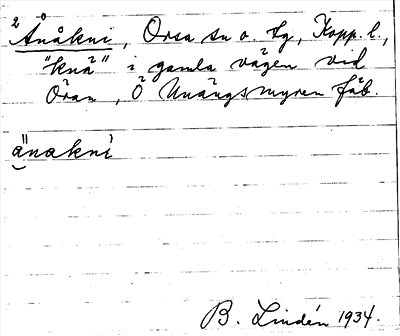 2 Ånåkni, Orsa sn o. tg, Kopp. l.,
"knä" i gamla vägen vid
Öran, Ö Unängsmyren fäb.
ä̀nakni
B. Lindén 1934.